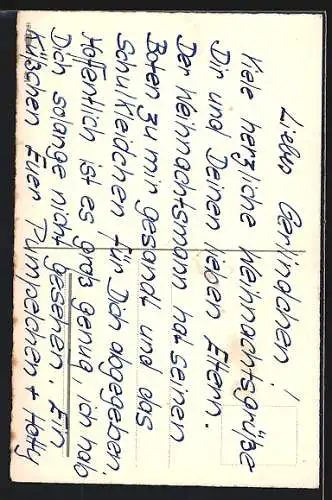 Liebes Gerlindchen!
Viele herzliche Weihnachtsgrüße
Dir und Deinen lieben Eltern.
Der Weihnachtsmann hat seinen
Boten zu mir gesandt und das
Schulkleidchen für Dich abgegeben.
Hoffentlich ist es groß genug, ich hab
Dich solange nicht gesehen. Ein
Küßchen Euer Pümpelchen + Hatty